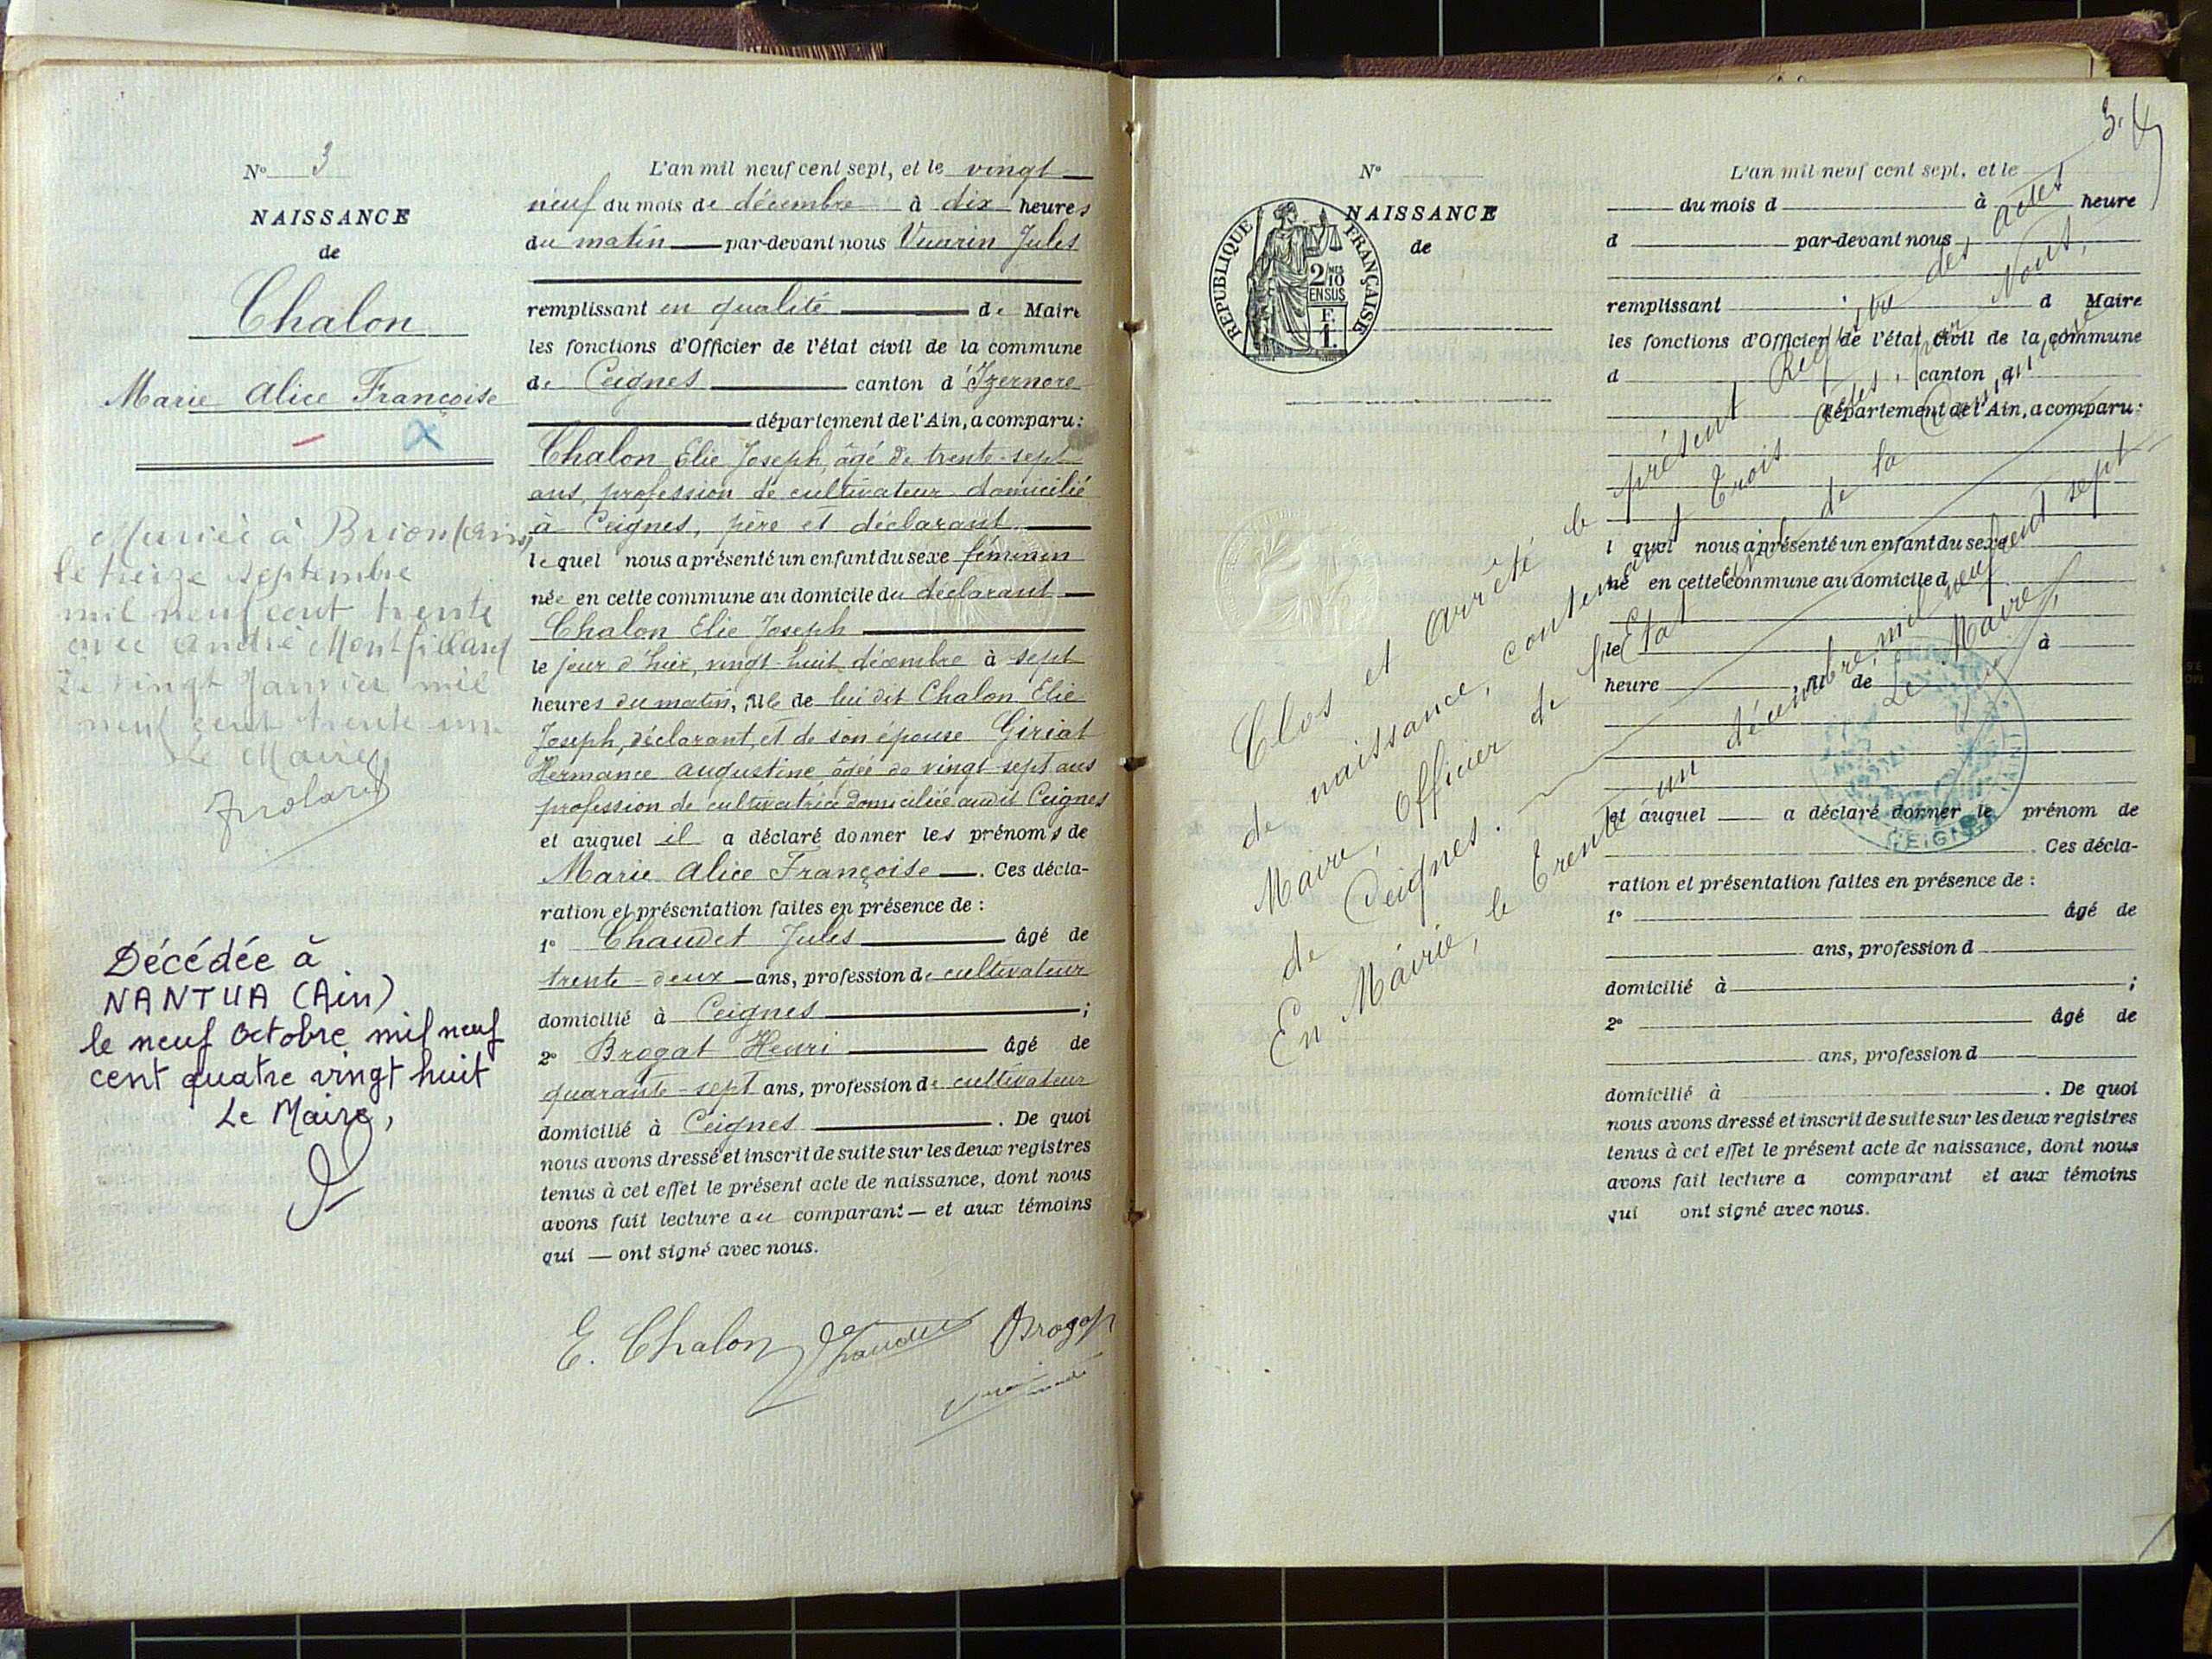 N° 3
NAISSANCE
de
Chalon
Marie Alice Françoise
Mariée à Brion (Ain)
le treize septembre
mil neuf cent trente
avec André Montfillard
Le vingt Janvier mil
neuf cent trente un.
Le Maire
Décédée à
NANTUA (Ain)
le neuf Octobre mil neuf
cent quatre vingt huit
Le Maire,
L'an mil neuf cent sept, et le vingt
neuf du mois de décembre à dix heures
du matin par-devant nous Vuarin Jules
remplissant en qualité de Maire
les fonctions d'Officier de l'état civil de la commune
de Ceignes canton d'Izernore
département de l'Ain, a comparu :
Chalon Elie Joseph, âgé de trente-sept
ans, profession de cultivateur domicilié
à Ceignes, père et déclarant
lequel nous a présenté un enfant du sexe féminin
née en cette commune au domicile du déclarant
Chalon Elie Joseph
le jour d'hier, vingt-huit décembre à sept
heures du matin, fille de lui dit Chalon Elie
Joseph, déclarant, et de son épouse Giriat
Hermance Augustine âgée de vingt sept ans
profession de cultivatrice domiciliée audit Ceignes
et auquel il a déclaré donner les prénoms de
Marie Alice Françoise. Ces décla-
ration et présentation faites en présence de :
1° Chaudet Jules âgé de
trente-deux ans, profession de cultivateur
domicilié à Ceignes ;
2° Brogat Henri âgé de
quarante-sept ans, profession de cultivateur
domicilié à Ceignes. De quoi
nous avons dressé et inscrit de suite sur les deux registres
tenus à cet effet le présent acte de naissance, dont nous
avons fait lecture au comparant — et aux témoins
qui — ont signé avec nous.
E. Chalon Chaudet Brogat
Vuarin
3.
N°
NAISSANCE
de
RÉPUBLIQUE FRANÇAISE
2/10
EN SUS
F.
1.
L'an mil neuf cent sept, et le
du mois d à heure
d par-devant nous
remplissant d Maire
les fonctions d'Officier de l'état civil de la commune
d canton d
département de l'Ain, a comparu :
l quel nous a présenté un enfant du sexe
né en cette commune au domicile d
le à
heure , fil de
et auquel a déclaré donner le prénom de
. Ces décla-
ration et présentation faites en présence de :
1° âgé de
ans, profession d
domicilié à ;
2° âgé de
ans, profession d
domicilié à . De quoi
nous avons dressé et inscrit de suite sur les deux registres
tenus à cet effet le présent acte de naissance, dont nous
avons fait lecture a comparant et aux témoins
qui ont signé avec nous.
Clos et arrêté le présent Registre des actes
de naissance, contenant trois actes, par Nous,
Maire, Officier de l'Etat civil de la Commune
de Ceignes.
En Mairie, le trente un décembre mil neuf cent sept
Le Maire,
CEIGNES